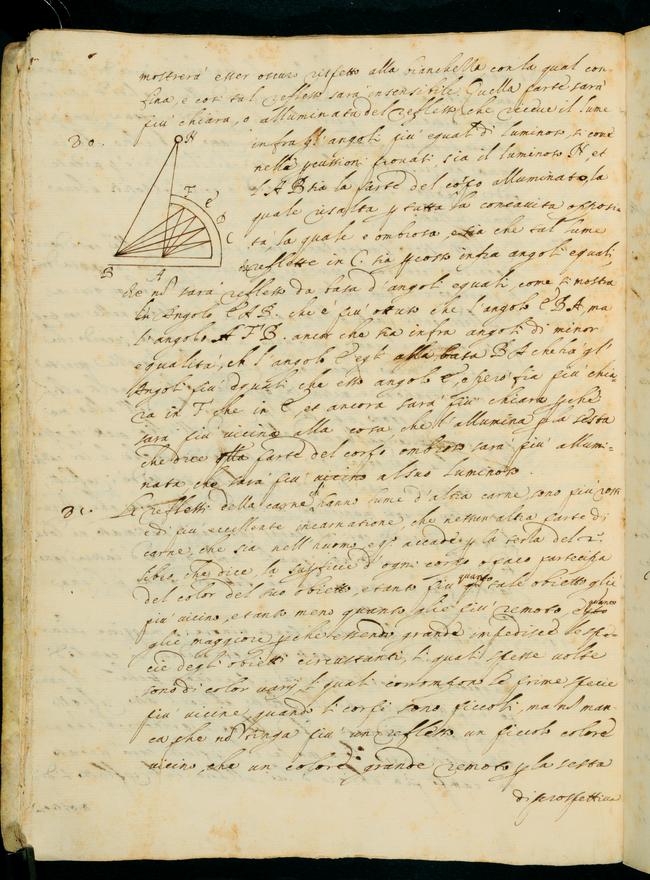 mostrerà esser oscuro rispetto alla bianchella con la qual con
fina, e così tal reflesso sarà insensibile. Quella parte sarà
più chiara, o alluminata del reflesso che riceve il lume
30.
infra gl'angoli più equali di luminoso, si come
nella provati sia il luminoso N, et
l'AB sia la parte del corpo alluminato, la
quale risalta p tutta la concavità opposi
tà, la quale è ombrosa, e sia che tal lume
reflette in C. sia infra angoli equali
che nō sarà reflesso da basa d'angoli equali come si mostra
angolo EAB. che è più ottuso che l'angolo EBA, ma
l'angolo AFB. ancor che sia infra angoli di minor
equalità, ch l'angolo E, egli alla basa BA che hà gl'
Angoli più che esso angolo E, e però fia più chia-
ra in F che in E, et ancora sarà più chiara pchè
sarà più vicina alla cosa che l'allumina p la sesta
che dice qlla parte del corpo ombroso sarà più allumi-
nata che sarà più vicina al suo luminoso.
31. Li reflessi della carne, ch'hanno lume d'altra carne, sono più rossi
e di più eccellente incarnatione, che nessun'altra parte di
carne, che sia nell'huomo, e qsto accade p la terza del 2º
libro, che dice, la superficie d'ogni corpo opaco partecipa
del color del suo obietto, e tanto più quanto tale obietto gli è
più vicino, e tanto meno quanto gli è più remoto, e quanto
gli è maggiore, pche essendo grande impedisce le spe-
cie degli obietti circustanti, li quali spesse volte
sono di color varij, li quali corrompono le prime specie
più vicine quando li corpi sono piccoli, ma nō man-
ca, che nō tinga più un reflesso un piccolo colore
vicino, che un colore grande remoto p la sesta
di prospettiva
N
F
E
D
C
B
A